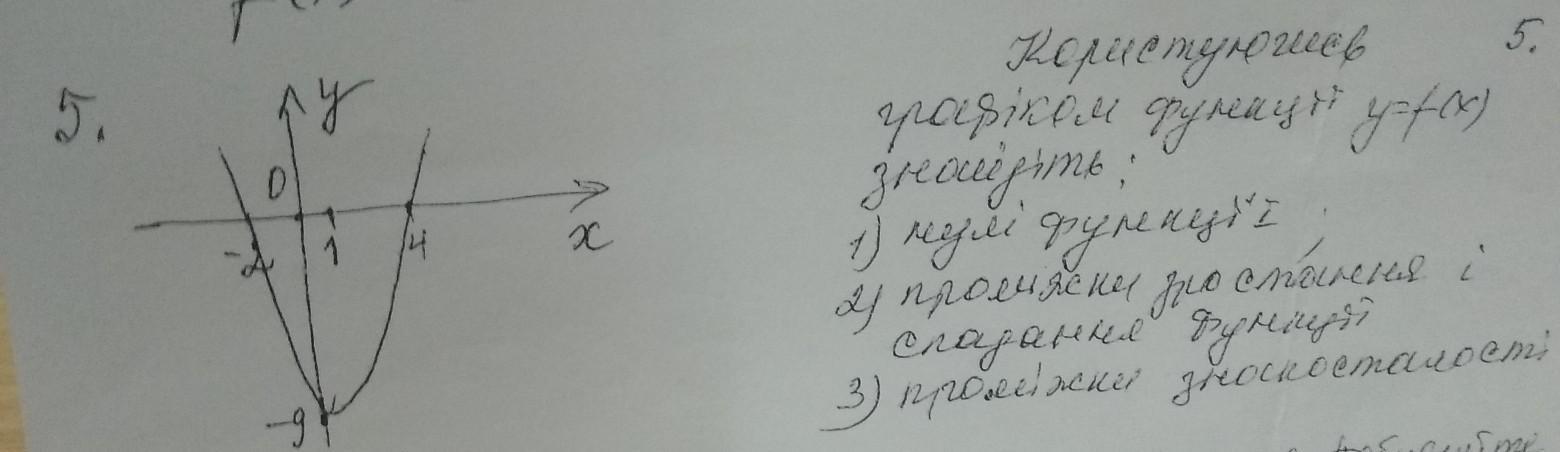 5.
y
0
-2
1
4
x
-9
Користуючись 5.
графіком функції y=f(x)
знайдіть:
1) нулі функції
2) проміжки зростання і
спадання функції
3) проміжки знакосталості